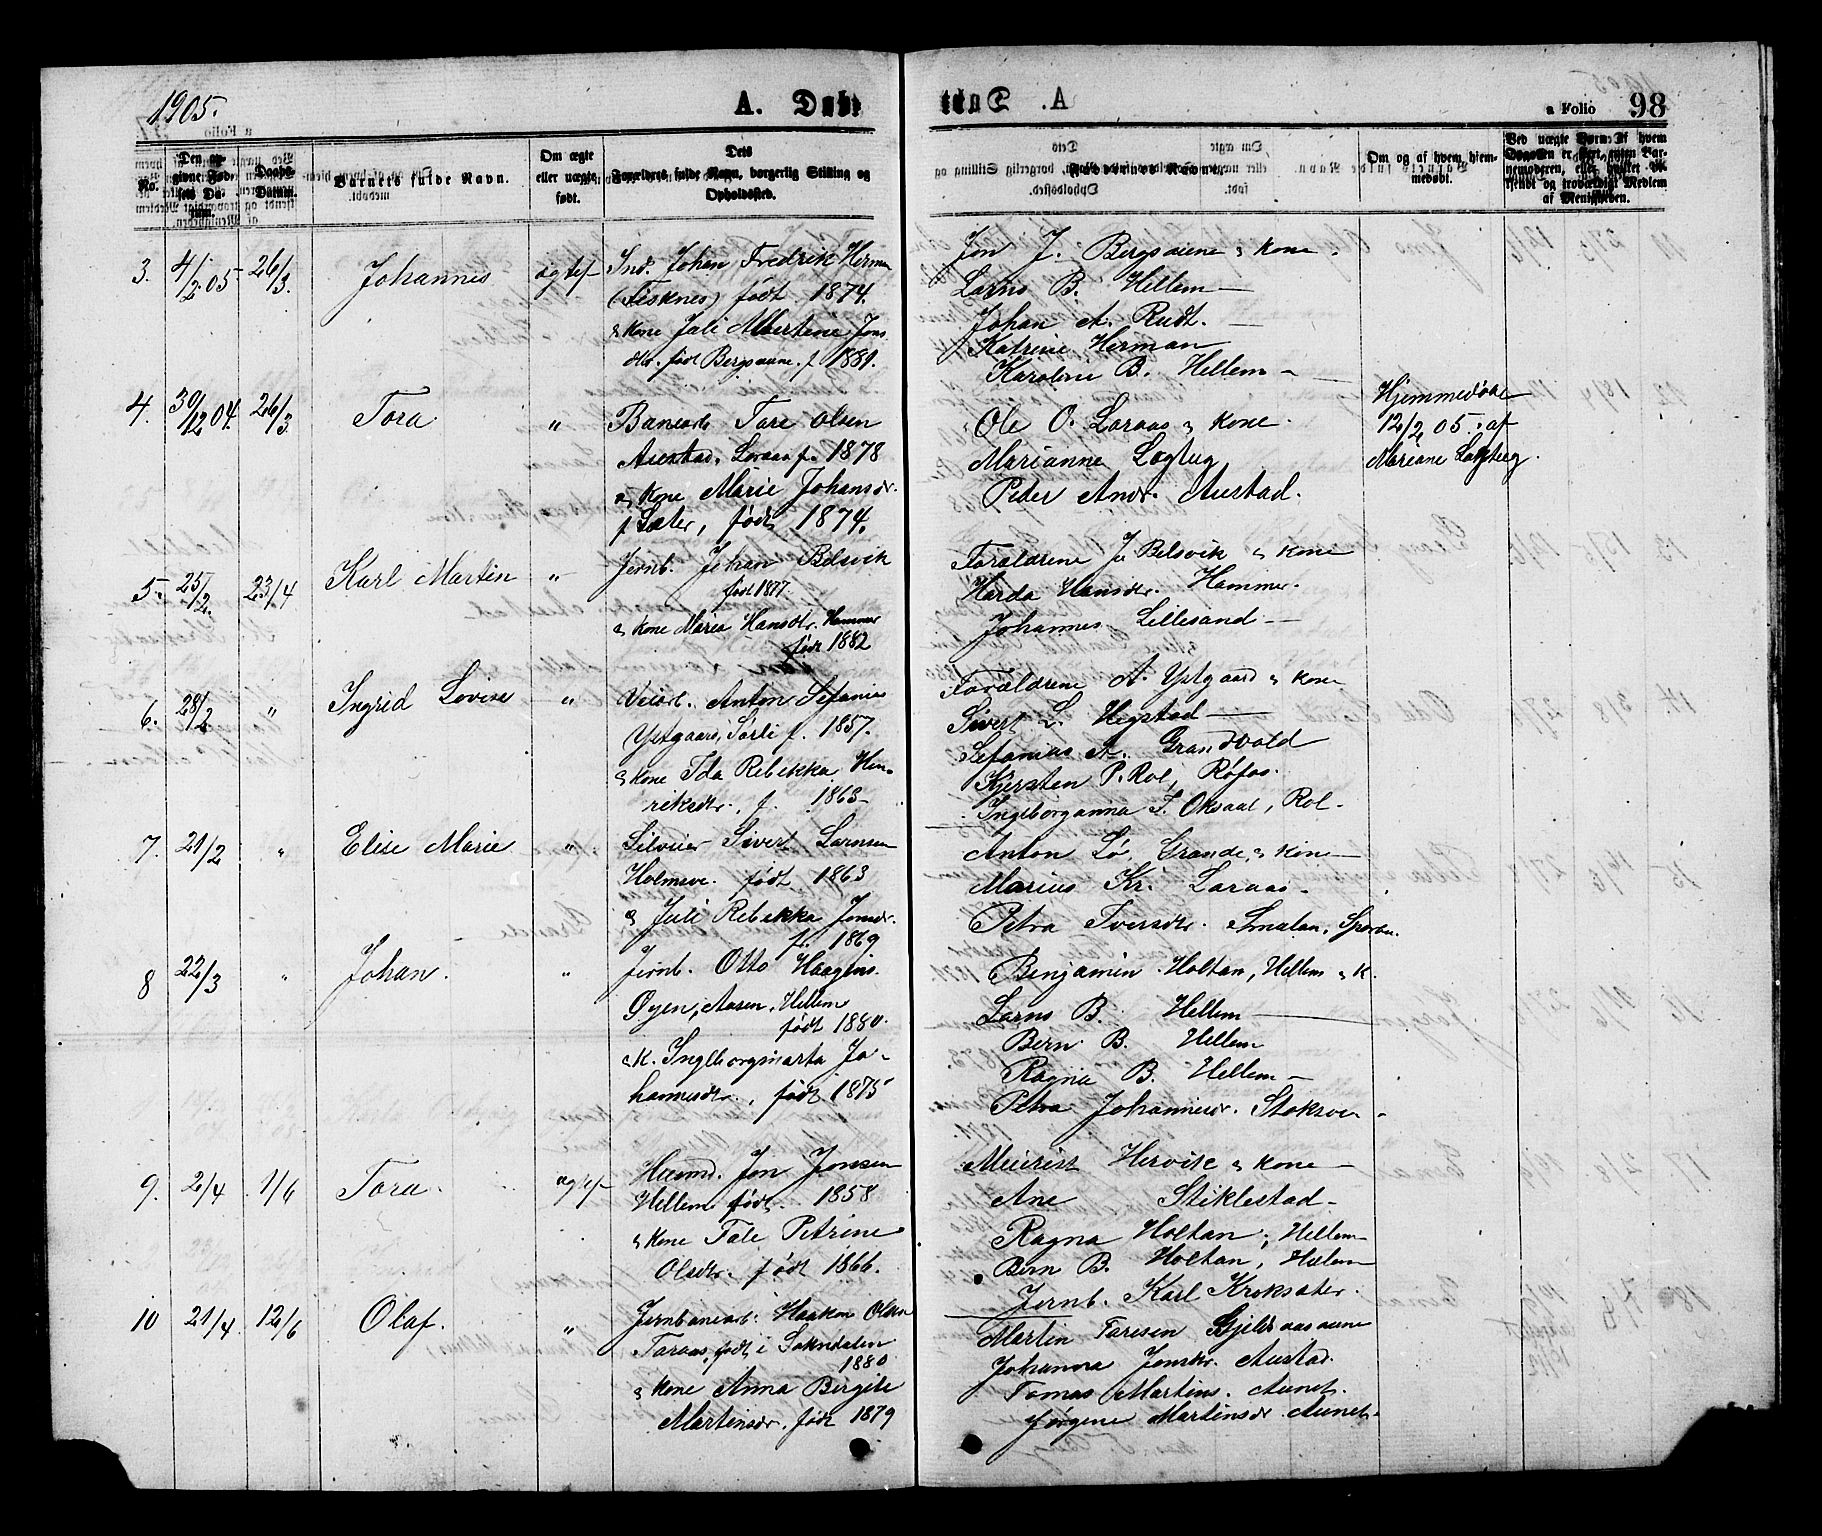 1905.
A. Døbt
a Folio 98
No.
Den angivne Fødsels Datum.
Daabs-Datum.
Barnets fulde Navn.
Om ægte eller uægte født.
Forældres fulde Navn, borgerlig Stilling og Opholdssted.
Faddernes Navne.
Om og af hvem hjemmedøbt.
af Menigheden.
3. 4/2 05 26/3. Johannes ægtef
Ind. Johan Fredrik Herman
(Fisknes) født 1874.
& Kone Juli Albertine Jons
dtr. født Bergsaune f 1881.
Jon J. Bergsaune & Kone
Lorns B. Hellem
Johan A. Rudt.
Katrine Herman
Karoline B. Hellem
4. 30/12 04. 26/3 Tora "
Banearb Tore Olsen
Austad, Loraas f. 1878
& Kone Marie Johansdr.
f Sæter, født 1874.
Ole O. Loraas & Kone
Marianne Lægtug
Peder Andr. Austad.
Hjemmedøbt
12/2 05 af
Mariane Lægtug.
5. 25/2. 23/4 Karl Martin "
Jernb. Johan Belsvik
født 1877.
& Kone Maria Hansdtr. Hammer
født 1882
Forældrene J. Belsvik & Kone
Harda Hansdr. Hammer.
Johannes Lillesand
6. 28/2 " Ingrid Lovise "
Veiarb. Anton Sefanias
Ystgaard, Sørli f. 1857.
& Kone Ida Rebekka Hen-
riksdtr., f. 1863
Forældrene A. Ystgaard & Kone
Sivert L. Hegstad
Sefanias A. Grandvold
Kjersten P. Rol, Røfos.
Ingeborganna T. Oksaal, Rol
7. 21/2 " Elise Marie "
Sivert Lornsen
Holmsve. født 1863
& Juli Rebekka Jonsdr.
f. 1869
Anton Lø. Grande & Kone
Marius Kr. Loraas
Petra Iversdtr. Smalan, Sparbu.
8 22/3 " Johan. "
Jernb. Otto Haagens.
Øyen, Aasen, Hellem
født 1880.
& K. Ingeborgmarta Jo-
hannesdtr., født 1875
Benjamin Holtan, Hellem & K.
Lorns B. Hellem
Bern B. Hellem
Ragna B. Hellem
Petra Johannesdr. Stoksve
9. 2/4 1/6 Tora. ægtef
Husmd. Jon Jonsen
Hellem født 1858
& Kone Tale Petrine
Olsdtr. født 1866.
Meierist Hervik & Kone
Ane Stiklestad
Ragna Holtan, Hellem
Bern B. Holtan, Hellem
Jernb. Karl Kroksæter.
10 21/4 12/6 Olaf. "
Jernbanearb. Haakon Olsen
Toraas, født i Soknedalen
1880
& Kone Anna Birgite
Martinsdr. født 1879
Martin Toresen Gjelsaasaune
Johanna Jonsdr. Austad.
Tomas Martins. Aunet.
Jørgene Martinsdr. Aunet